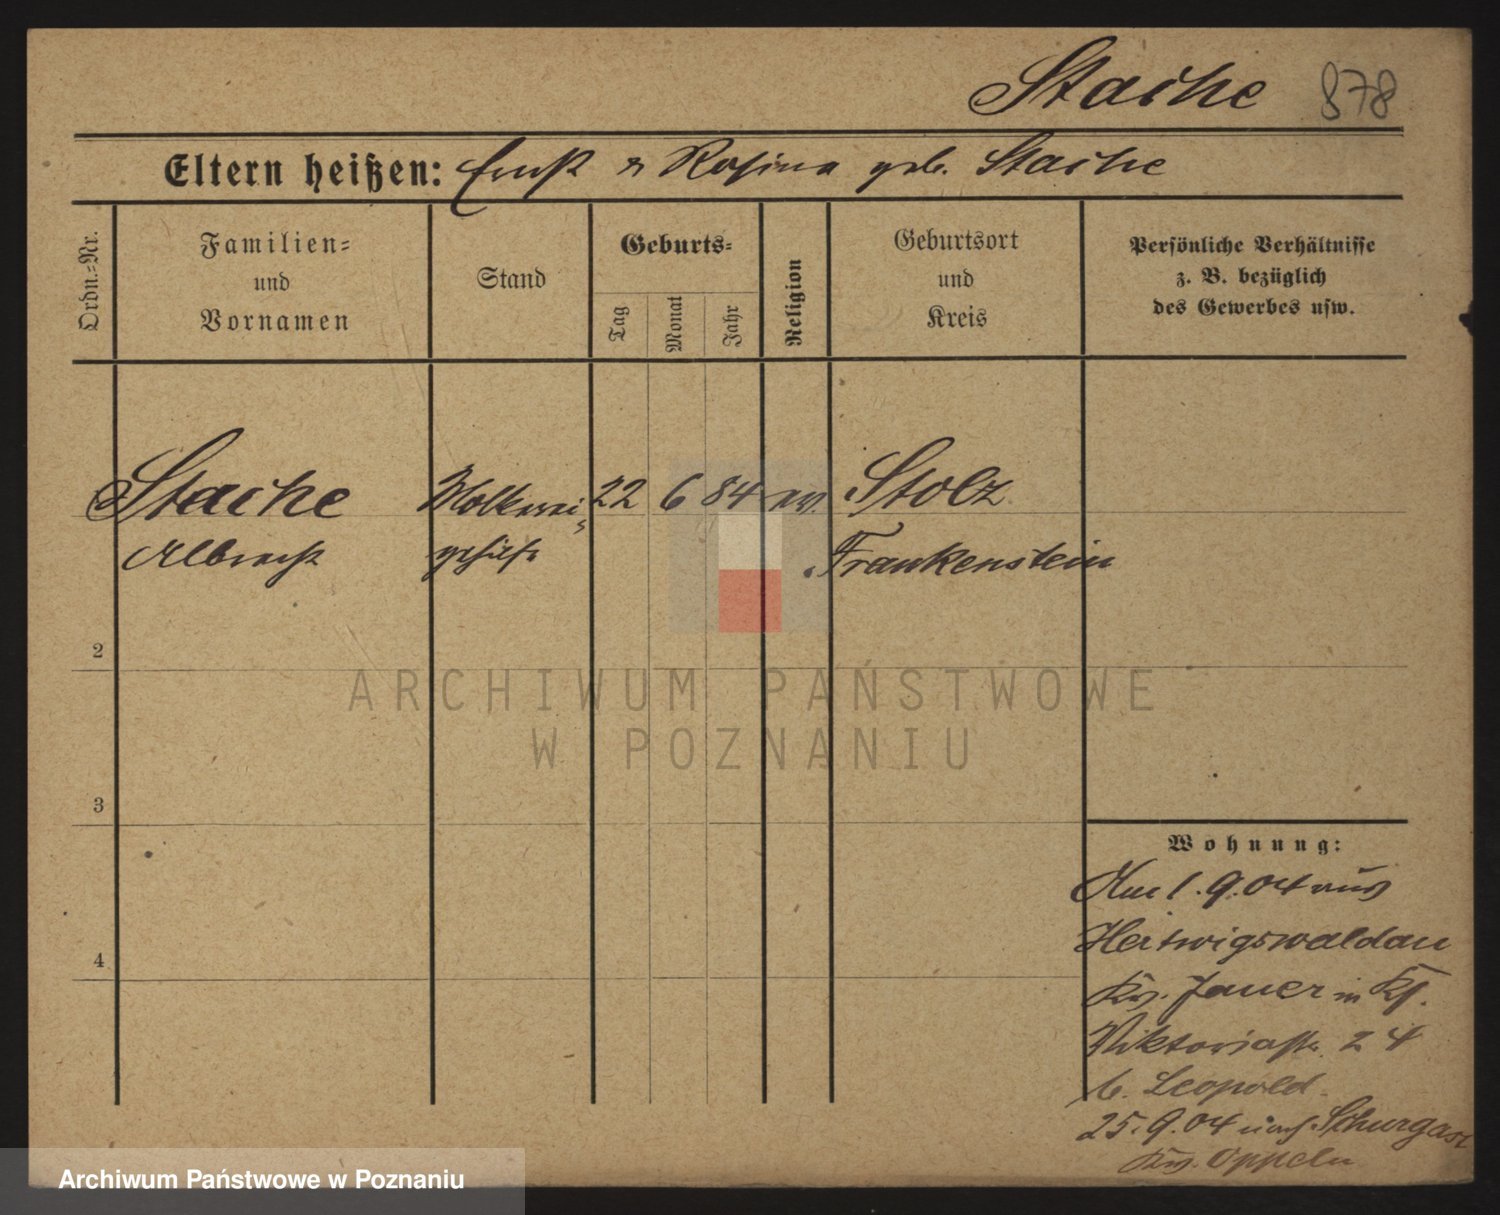 Stache 878
Eltern heißen: Ernst & Rosina geb. Stache
Ordn.-Nr.
Familien-
und
Vornamen
Stand
Geburts-
Tag
Monat
Jahr
Religion
Geburtsort
und
Kreis
Persönliche Verhältnisse
z. B. bezüglich
des Gewerbes usw.
Stache Molkerei- 22 6 84 ev. Stolz
Albrecht gehülfe Frankenstein
2
3
4
Wohnung:
1.9.04 aus
Hertwigswaldau
Kr. Jauer in
Viktoriastr. 24
b. Leopold
25.9.04 nach Schurgast
Kr. Oppeln
ARCHIWUM PAŃSTWOWE
W POZNANIU
Archiwum Państwowe w Poznaniu